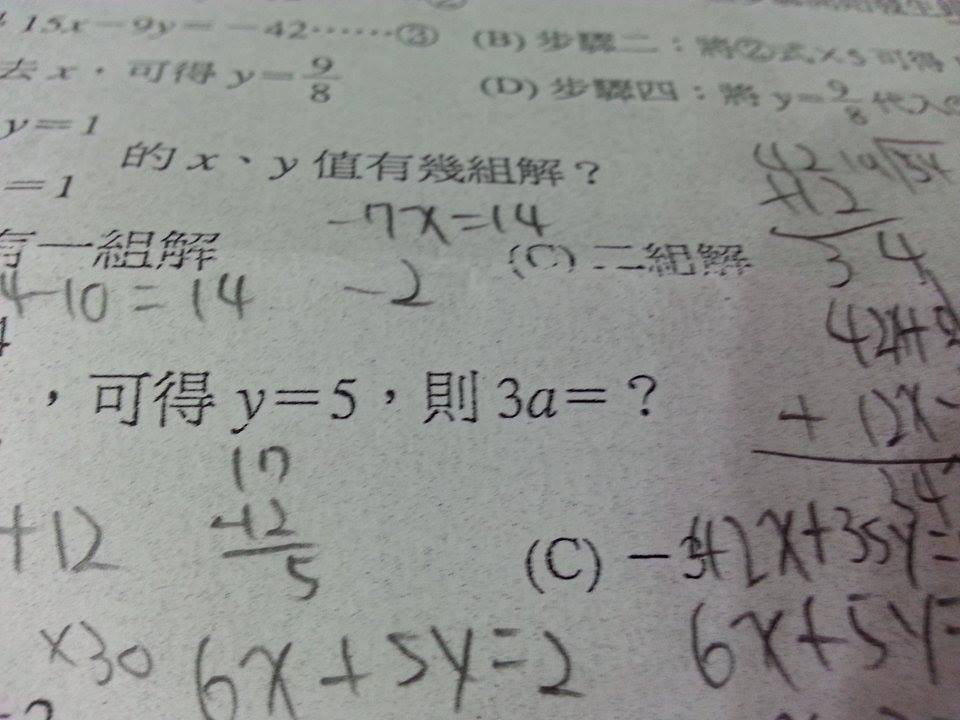 15x－9y＝－42……③ (B) 步驟二：將②式×5可得
去 x，可得 y＝9/8 (D) 步驟四：將 y＝9/8 代入
y＝1
的 x、y 值有幾組解？
＝1
-7x=14
有一組解 (C) 二組解
4-10=14 -2
，可得 y＝5，則 3a＝？
17
-12
5
+12
(C) －
42x+35y=
×30 6x+5y=2 6x+5y=
42
+12
34
+ 12x-